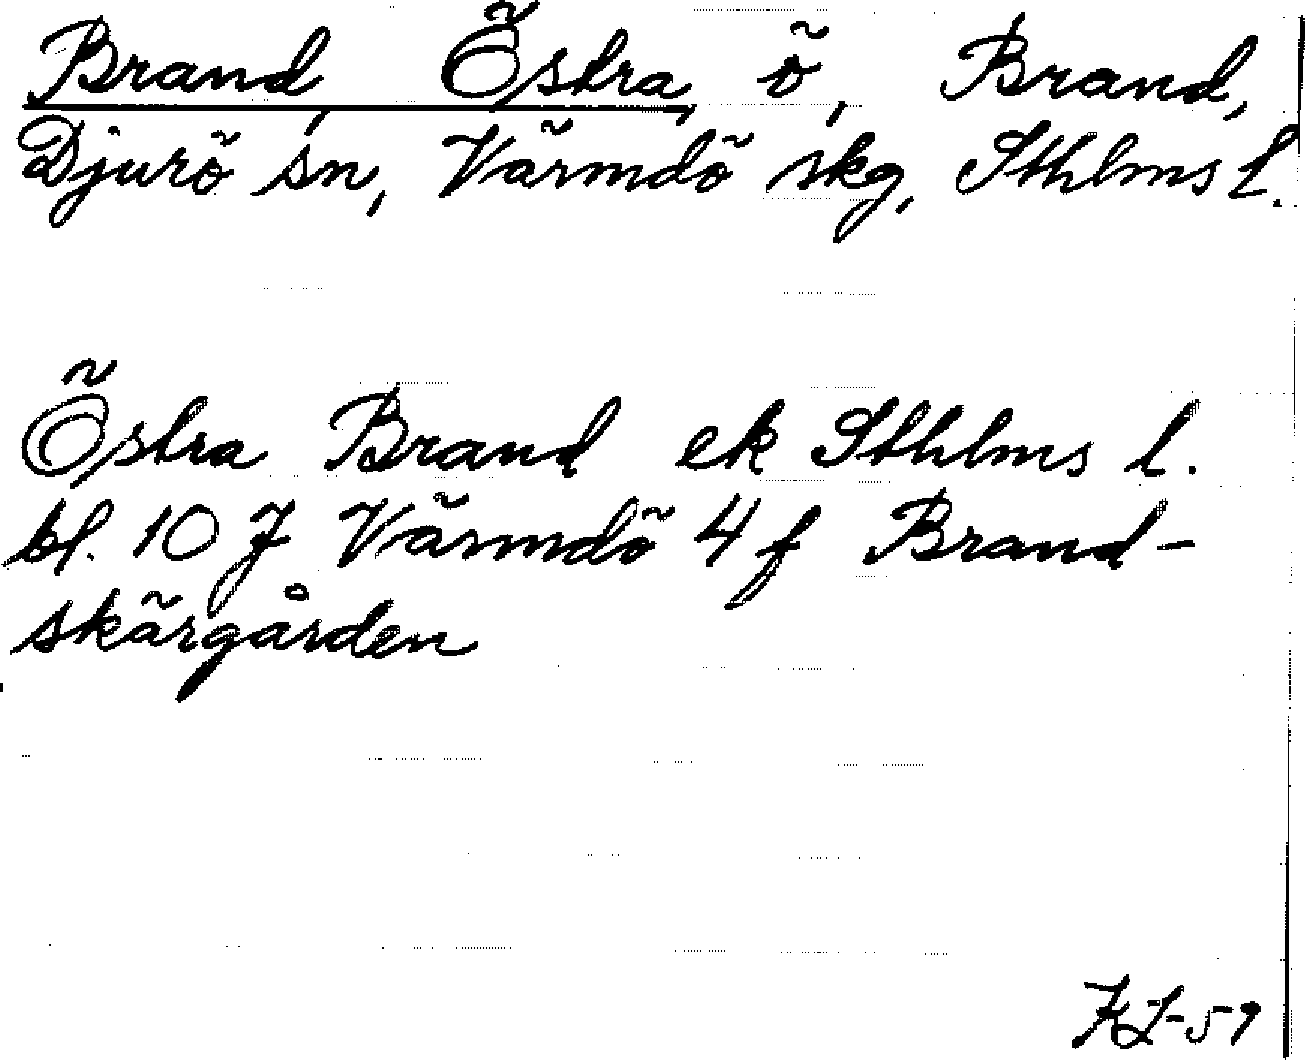 Brand, Östra, ö, Brand,
Djurö sn, Värmdö skg, Sthlms l.
Östra Brand ek Sthlms l.
bl. 10 J Värmdö 4 f Brand-
skärgården
KL-59